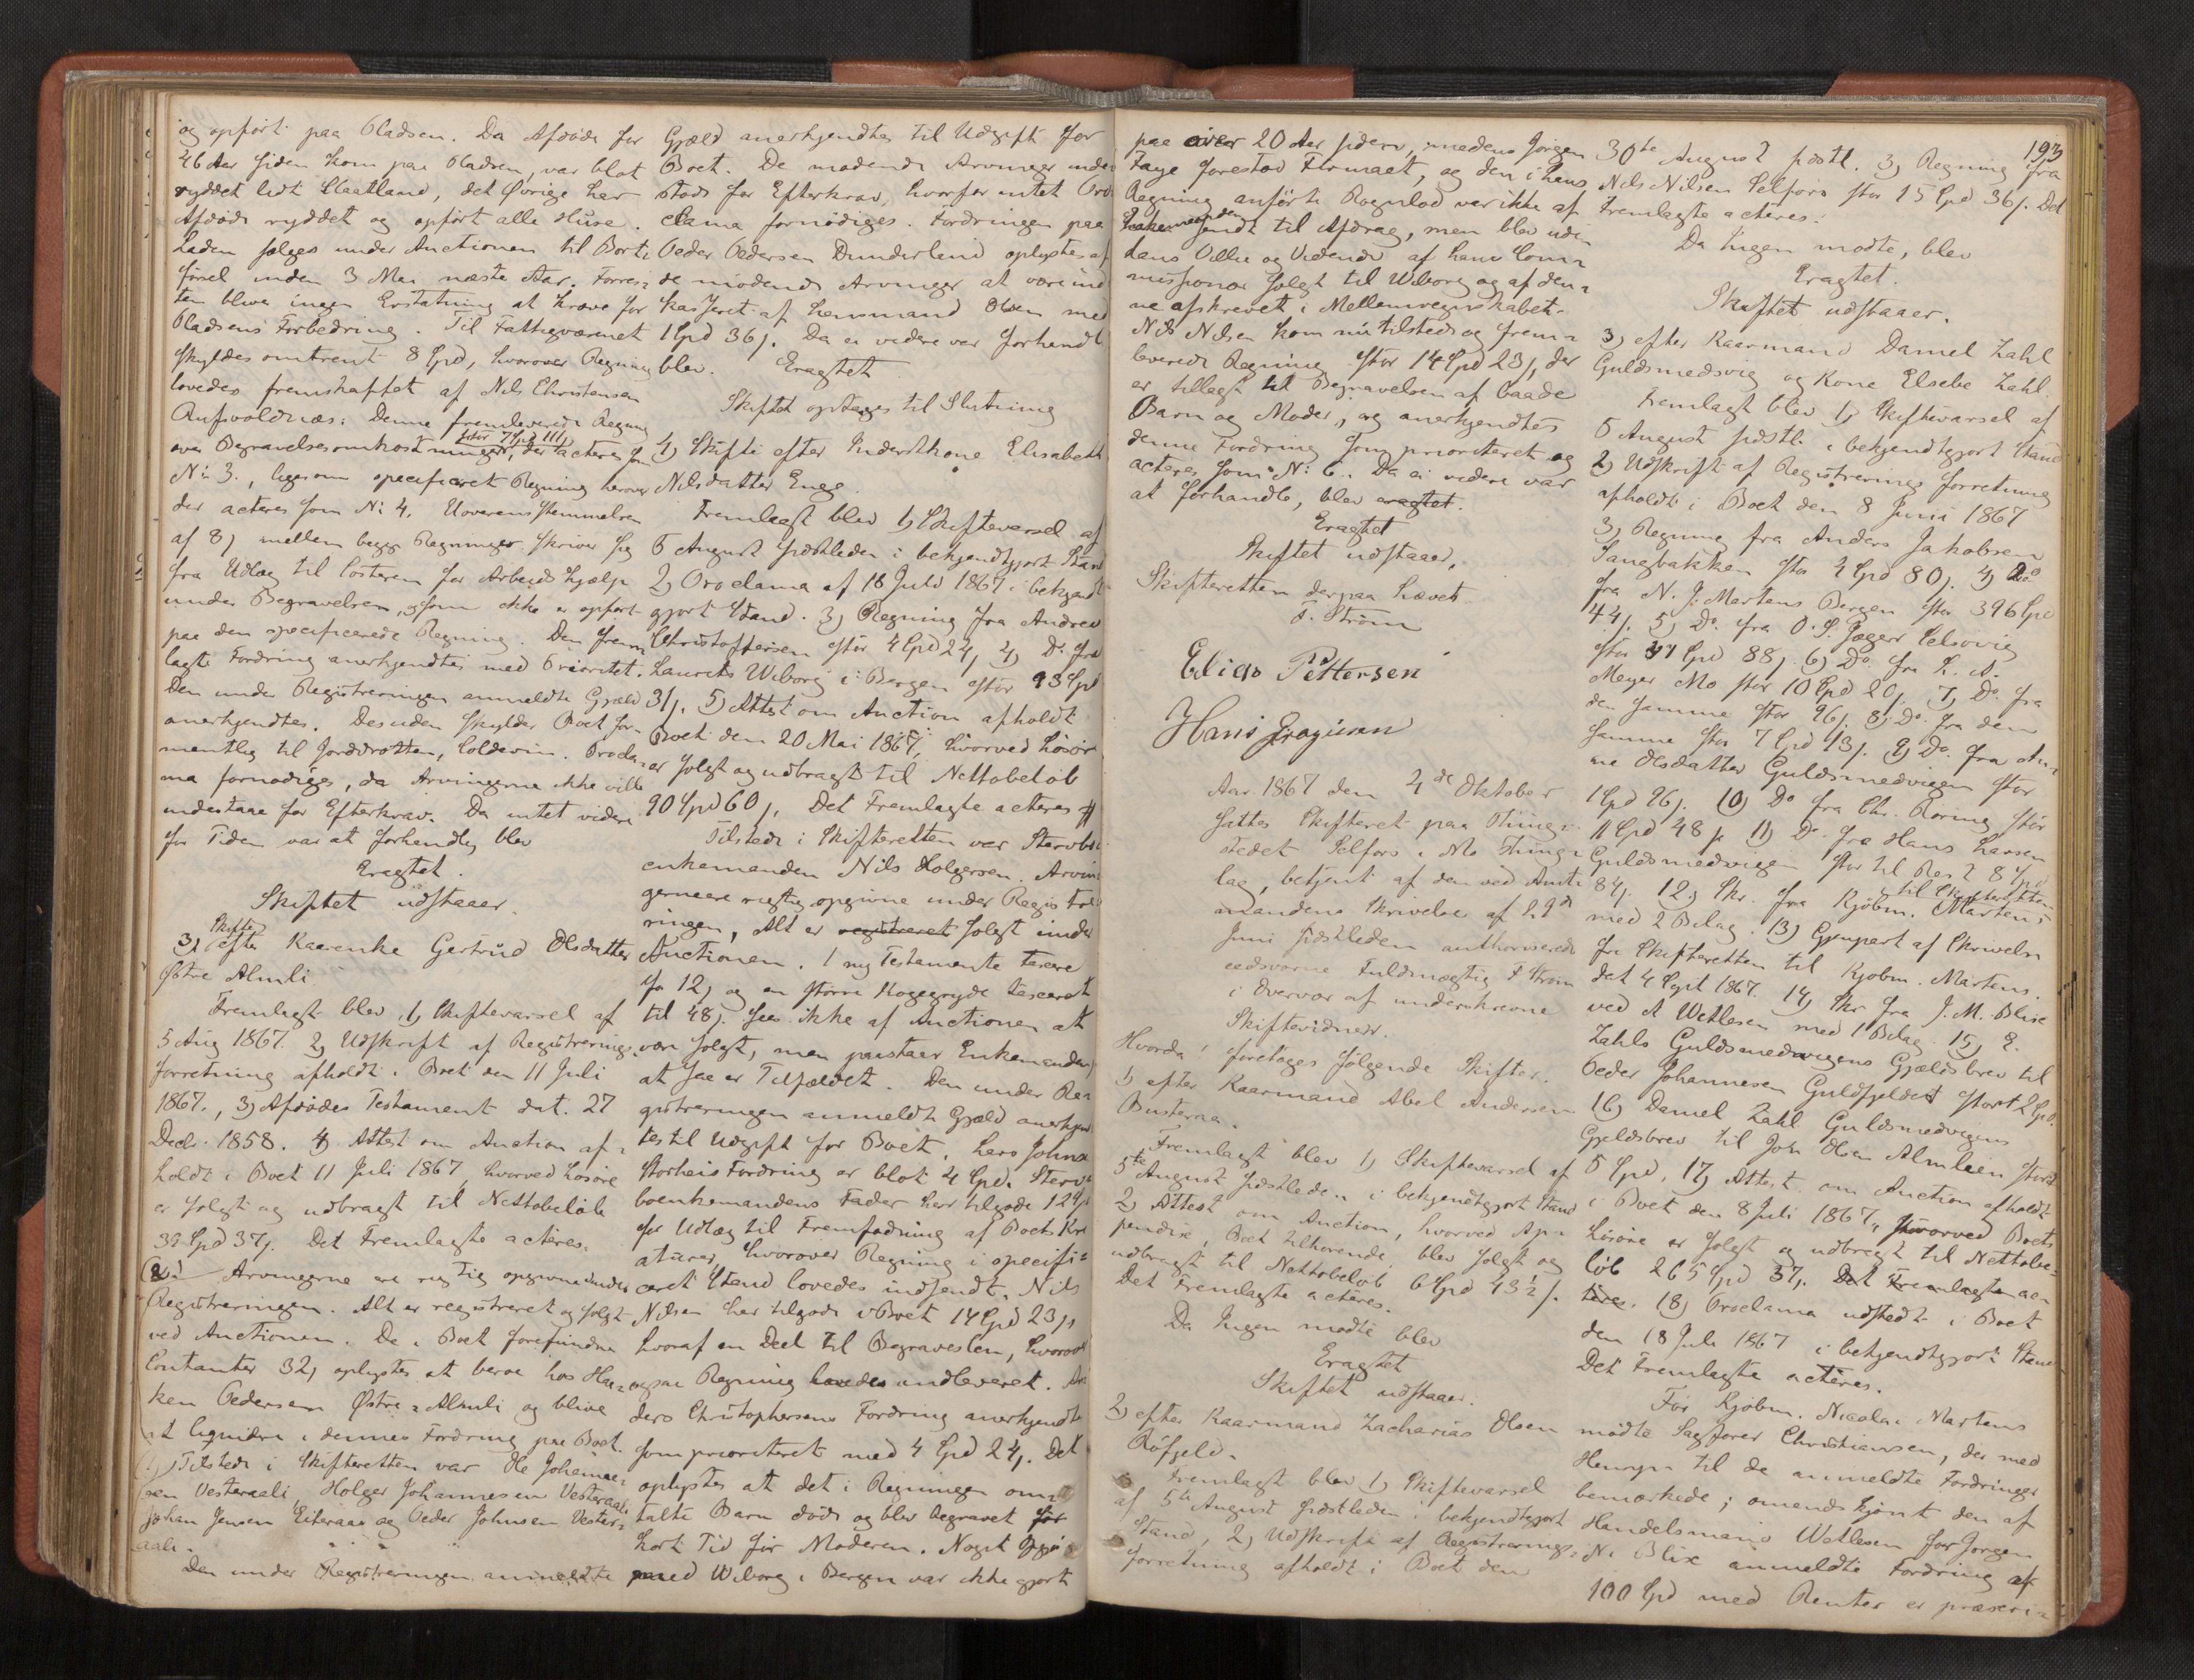 og opført paa Pladsen. Da Afdøde for
46 Aar siden kom paa Pladsen, var blot
ryddet lidt Slaatland, det Øvrige har
Afdøde ryddet og opført alle Huse.
Laden sælges under Auctionen til Borti
førsel inden 3 Mai næste Aar. Forres-
ten bliver ingen Erstatning at kræve for
Pladsens Forbedring. Til Fattigvæsenet
skyldes omtrent 8 Spd, hvorover Regning
loves fremskaffet af Nils Christensen
Denne fremleverede Regning
over Begravelsesomkostninger, stor 7 Spd 111 der acteres som
No 3., ligesom specificeret Regning herover
der acteres som No 4. Uoverensstemmelsen
af 8 s mellem begge Regninger skriver sig
fra Udlæg til Costeren for Arbeidshjælp
under Begravelsen, som ikke er opført
paa den specificerede Regning. Den frem-
lagte Fordring anerkjendtes med Prioritet.
Den under Registreringen anmeldte Gjæld
anerkjendtes. Desuden skylder Boet for-
mentlig til Jorddrotten, Coldevin. Procla-
ma fornødiges, da Arvingerne ikke vilde
indestaae for Efterkrav. Da intet videre
for Tiden var at forhandle, blev
Eragtet.
Skiftet udstaaer.
3, Skifte efter Kaarenke Gertrud Olsdatter
Østre Almli
Fremlagt blev 1, Skiftevarsel af
5 Aug 1867. 2, Udskrift af Registrerings-
forretning afholdt i Boet den 11 Juli
1867., 3, Afdødes Testament dat. 27
Decbr. 1858. 4, Attest om Auction af-
holdt i Boet 11 Juli 1867, hvorved Løsøre
er solgt og udbragt til Nettobeløb
39 Spd 37 s. Det Fremlagte acteres.
Arvingerne ere rigtig opgivne under
Registreringen. Alt er registreret og solgt
ved Auctionen. De i Boet forefundne
Contanter 32 s oplystes at beroe hos Haa-
ken Pedersen Østre-Almli og blive
at liqvidere i dennes Fordring paa Boet.
Tilstede i Skifteretten var Ole Johanne-
sen Vesteraali, Holger Johannesen Vesteraali
Johan Jensen Eiteraae og Peder Johnsen Vester-
aali.
Den under Registreringen anmeldte
Gjæld anerkjendtes til Udgift for
Boet. De mødende Arvinger inde-
stode for Efterkrav, hvorfor intet Pro-
clama fornødiges. Fordringen paa
Peder Pedersen Dunderland oplystes af
de mødende Arvinger at være ind-
kasseret af Lensmand Olsen med
1 Spd 36 s. Da ei videre var forhandle
blev. Eragtet
Skiftet optages til Slutning
4, Skifte efter Inderstkone Elisabeth
Nilsdatter Enge.
Fremlagt blev 1, Skiftevarsel af
5 August sidstleden i bekjendtgjort Stand
2, Proclama af 18 Juli 1867 i bekjendt-
gjort Stand. 3, Regning fra Andreas
Christoffersen stor 4 Spd 24, 4, Do fra
Laurits Wiborg i Bergen stor 93 Spd
31 s. 5, Attest om Auction afholdt
Boet den 20 Mai 1867, hvorved Løsøre
er solgt og udbragt til Nettobeløb
90 Spd 60 s. Det Fremlagte acteres
Tilstede i Skifteretten var Stervbo-
enkemanden Nils Holgersen. Arvin-
gerne ere rigtig opgivne under Regis tre-
ringen, Alt er registreret solgt under
Auctionen. 1 ny Testamente taxeret
for 12 s og en større Kogegryde taxeret
til 48 s. sees ikke af Auctionen at
være solgt, men paastaar Enkemanden,
at saa er Tilfældet. Den under Re-
gistreringen anmeldte Gjæld anerkjend-
tes til Udgift for Boet. Lars Johns
Storheis Fordring er blot 4 Spd. Sterv-
boenkemandens Fader har tilgode 12 Spd
for Udlæg til Fremfødning af Boets Kre-
aturer, hvorover Regning i specifi-
ceret Stand lovedes indsendt. Nils
Nilsen har tilgode i Boet 14 Spd 23 s,
hvoraf en Deel til Begravelsen, hvorover
ogsaa Regning lovedes indleveret. An-
ders Christophersens Fordring anerkjendt
som prioriteret med 4 Spd 24 s. Det
oplystes at det i Regningen om-
talte Barn døde og blev begravet før
kort Tid før Moderen. Noget Opgjør
med Wiborg i Bergen var ikke gjort
193
paa over 20 Aar siden, medens Jørgen
Faye forestod Firmaet, og den i hans
Regning anførte Rognlod var ikke af
sendt til Afdrag, men blev uden
hans Villie og Vidende af hans Com-
missionær solgt til Wiborg og af den-
ne afskrevet i Mellemregnskabet.
Nils Nilsen kom nu tilstede og frem-
leverede Regning stor 14 Spd 23 s, der
er tillagt til Begravelsen af baade
Barn og Moder, og anerkjendtes
denne Fordring som prioriteret og
acteres som No 6. Da ei videre var
at forhandle, blev eragtet.
Eragtet
Skiftet udstaaer.
Skifteretten derpaa hævet.
F. Strøm
Elias Pettersen
Hans
Aar 1867 den 4de Oktober
sattes Skifteret paa Thing-
stedet Selfors i Mo Thing-
lag, betjent af den ved Amt-
mandens Skrivelse af 29de
Juni sidstleden authoriserede
eedsvorne Fuldmægtig F Strøm
i Overvær af underskrevne
Skiftevidner.
Hvorda
foretoges følgende Skifter.
1, efter Kaarmand Abel Andersen
Busteraa.
Fremlagt blev 1, Skiftevarsel af
5te August sidstleden i bekjendtgjort Stand
2, Attest om Auction, hvorved Ap-
pendix, Boet tilhørende, blev solgt og
udbragt til Nettobeløb 6 Spd 43½ s.
Det Fremlagte acteres.
Da Ingen mødte blev
Eragtet
Skiftet udstaaer.
2, efter Kaarmand Zacharias Olsen
Røfjeld.
Fremlagt blev 1, Skiftevarsel
af 5te August sidstleden i bekjendtgjort
Stand, 2, Udskrift af Registrerings-
forretning afholdt i Boet den
30te August sidstl. 3, Regning fra
Nils Nilsen Selfors stor 15 Spd 36 s. Det
Fremlagte acteres.
Da Ingen mødte, blev
Eragtet.
Skiftet udstaaer.
3, efter Kaarmand Daniel Zahl
Guldsmedvig og Kone Elsebe Zahl.
Fremlagt blev 1, Skiftevarsel af
5 August sidstl. i bekjendtgjort Stand
2, Udskrift af Registrerings forretning
afholdt i Boet den 8 Juni 1867
3, Regning fra Anders Jakobsen
Langbakken stor 4 Spd 80 s. 4, Do
fra N. J. Martens Bergen stor 396 Spd
44 s. 5, Do. fra O. S. Jæger Selsovig
stor 37 Spd 88 s. 6, Do. fra L. A.
Meyer Mo stor 10 Spd 20 s. 7, Do. fra
den samme stor 96 s. 8, Do. fra den
samme stor 7 Spd 13 s. 9, Do. fra An-
ne Olsdatter Guldsmedvigen stor
1 Spd 96 s. 10, Do fra Chr. Roring stor
11 Spd 48 s. 11, Do. fra Hans Larsen
Guldsmedvigen stor til Rest 8 Spd
84 s. 12, Skr. fra Kjøbm. Martens til Skifteretten
med 2 Bilag. 13, Gjenpart af Skrivelse
fra Skifteretten til Kjøbm. Martens.
dat 4 Sept 1867. 14, Skr fra J. M. Blix
ved A Wetlesen med 1 Bilag. 15,
Zahls Guldsmedvigens Gjældsbrev til
Peder Johannesen Guldfjeldet stort 2 Spd.
16, Daniel Zahl Guldsmedvigens
Gjældsbrev til John Olsen Almlien stort
5 Spd, 17, Attest om Auction afholdt
i Boet den 8 Juli 1867, hvorved Boets
Løsøre er solgt og udbragt til Nettobe-
løb 265 Spd 37 s. Det Fremlagte ac-
teres. 18, Proclama udstedt i Boet
den 18 Juli 1867 i bekjendtgjort Stand
Det Fremlagte acteres.
For Kjøbm. Nicolai Martens
mødte Sagfører Christiansen, der med
Hensyn til de anmeldte Fordringer
bemærkede; omendskjønt den af
Handelsmand Wetlesen for Jørgen
N. Blix anmeldte Fordring af
100 Spd med Renter er præscri-